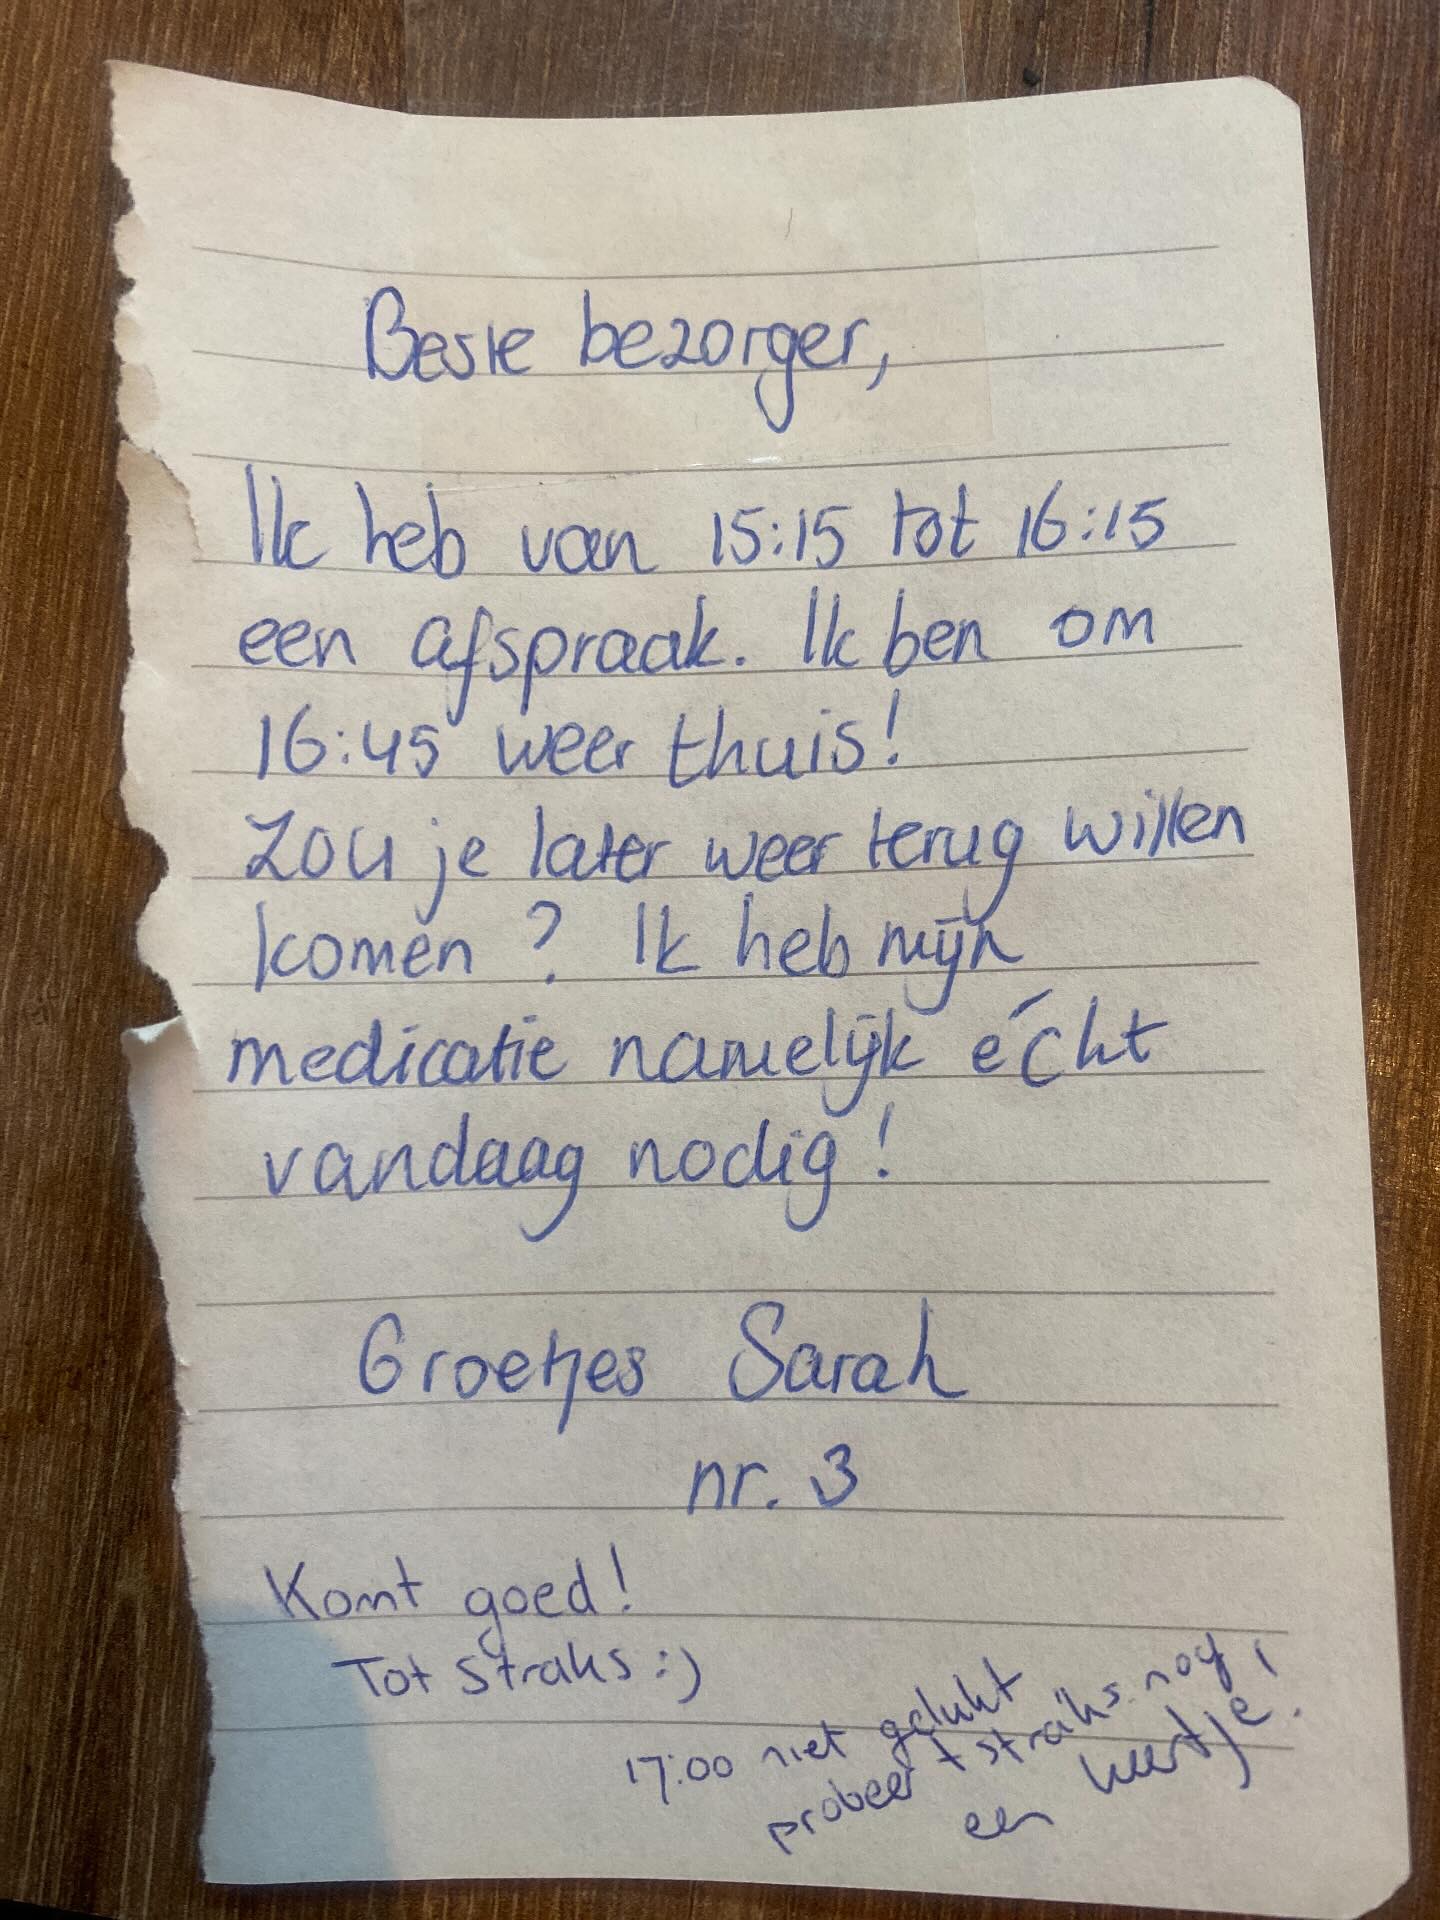 Beste bezorger,
Ik heb van 15:15 tot 16:15
een afspraak. Ik ben om
16:45 weer thuis!
Zou je later weer terug willen
komen? Ik heb mijn
medicatie namelijk écht
vandaag nodig!
Groetjes Sarah
nr. 3
Komt goed!
Tot straks :)
17:00 niet gelukt
probeer t straks nog
een keertje!